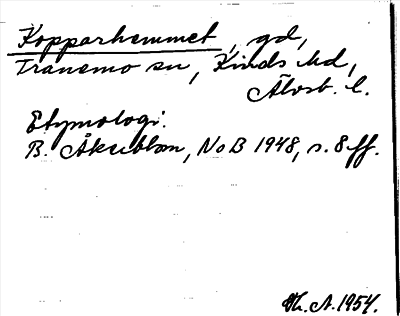 Kopparhemmet, gd,
Tranemo sn, Kinds hd,
Älvsb. l.
Etymologi.
B. Åkerblom, NoB 1948, s. 8 ff.
Th. A. 1954.